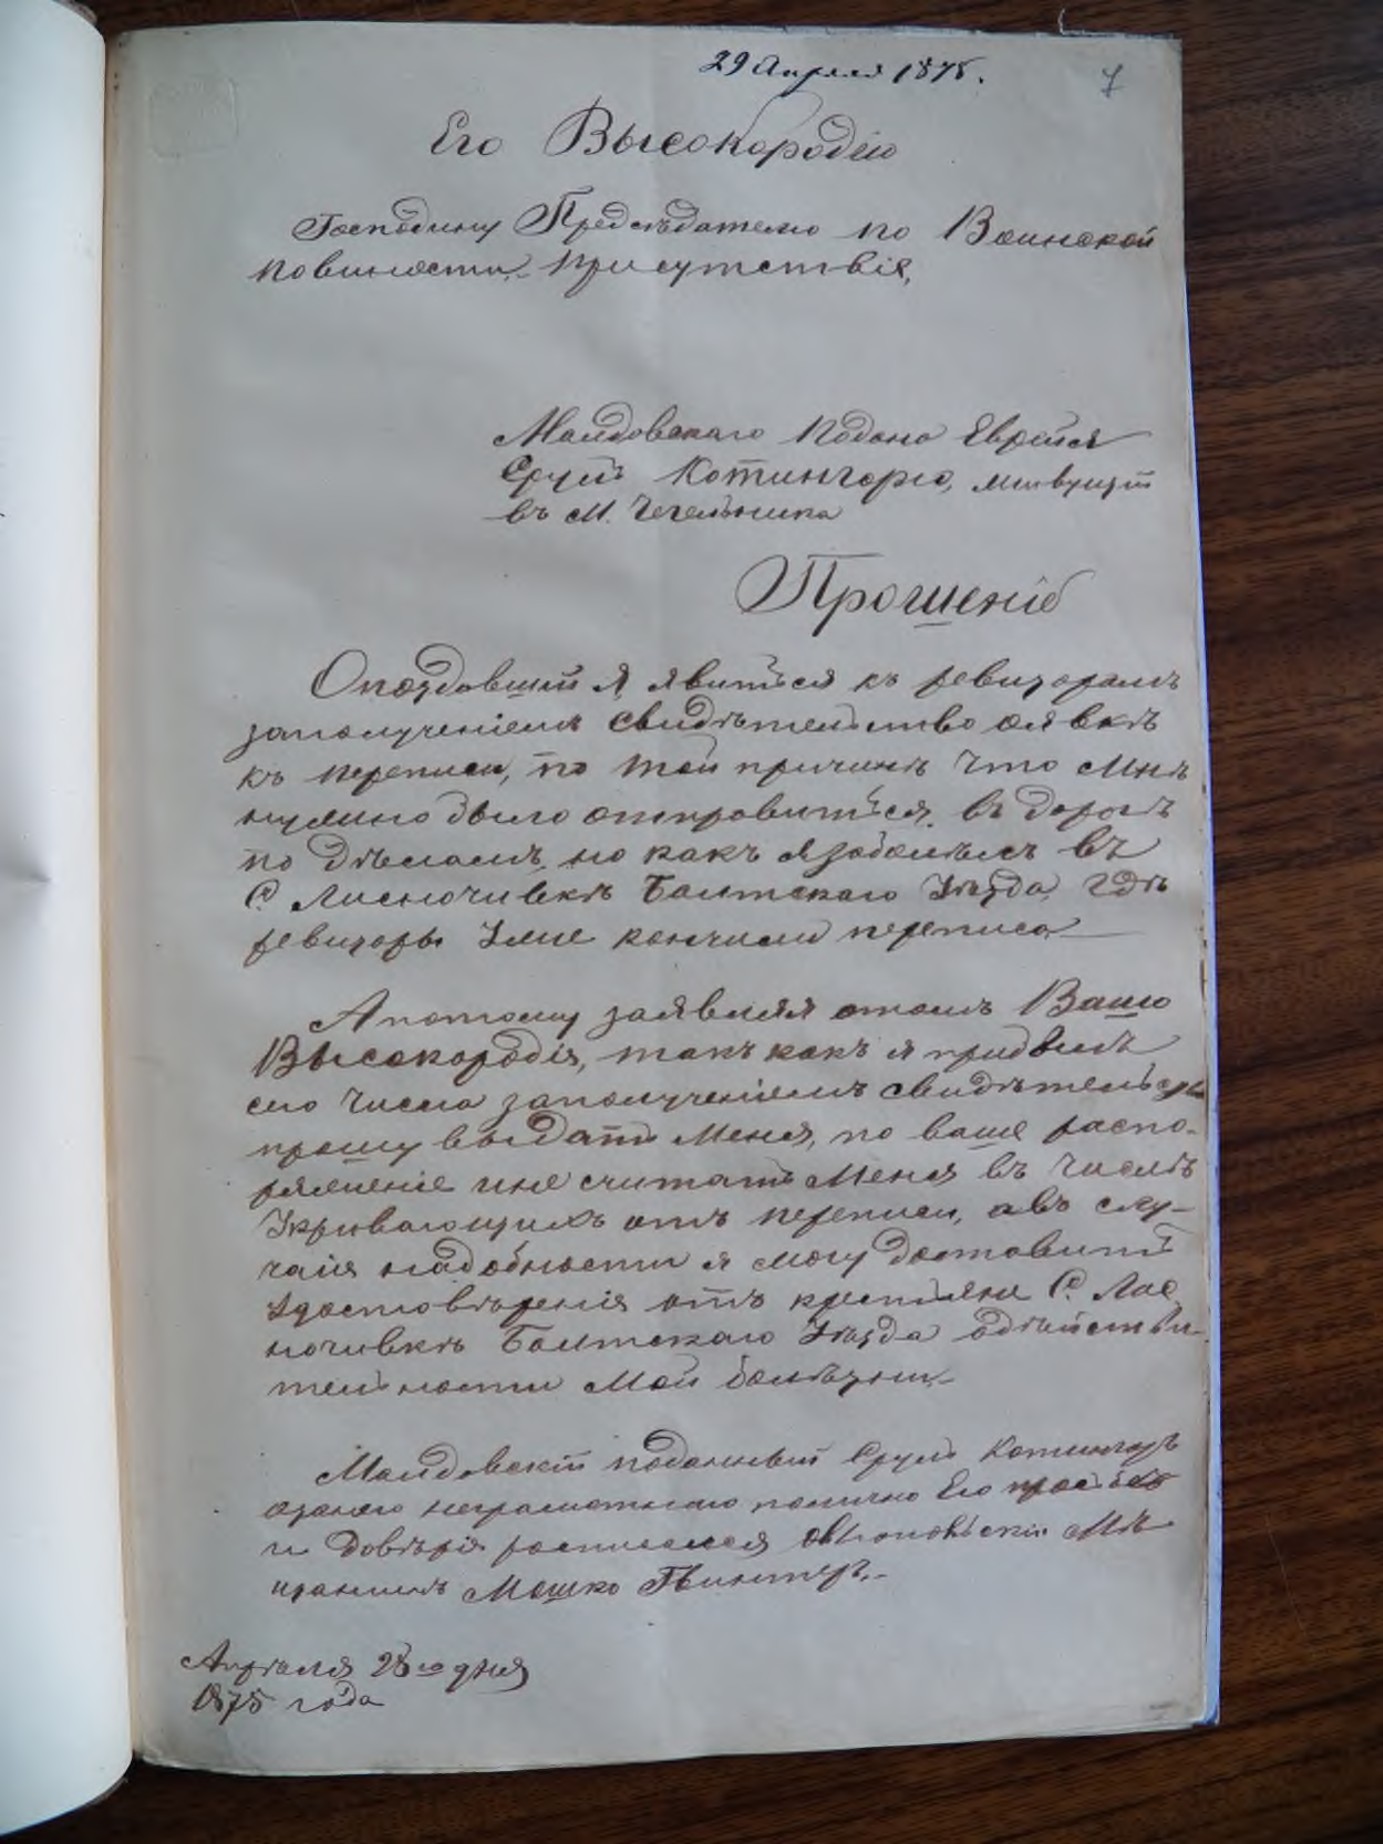 29 Апреля 1875.
7
Его Высокородію
Господину Председателю по Воинской
повиности присутствія,
Малдовскаго подано Еврейя
Сруль Котингорю, живущій
въ М. Чечельника
Прошеніе
Опоздовшій я явиться къ ревизорамъ
заполученіемъ свидѣтельство оявкѣ
къ переписи, по той причинѣ что Мнѣ
нужно было отправиться въ дорогѣ
по дѣламъ, но какъ язаболѣлъ въ
С. Лисночивкѣ Балтскаго Уѣзда, гдѣ
ревизоры Уже кончили переписо
Апотому заявляя отомъ Вашо
Высокородія, такъ какъ я придвылъ
сего Числа заполученіемъ свидѣтельства
прошу выдать Меня, по ваше распо-
ряженіе ине считать Меня въ Числѣ
Укривающихъ отъ переписи, авъ слу-
чаия надобности я могу доставить
Удостовѣренія отъ крестьяне С. Лис
ночивкѣ Балтскаго Уѣзда одѣйстви-
тельности Мой болѣзни.
Малдовскій подонный Сруль Котингоръ
азанего неграмотнаго полично Его просьбе
и довѣрія росписался Мѣ
щанинъ Мошко Гвинтеръ.
Апрѣля 28го дня
1875 года